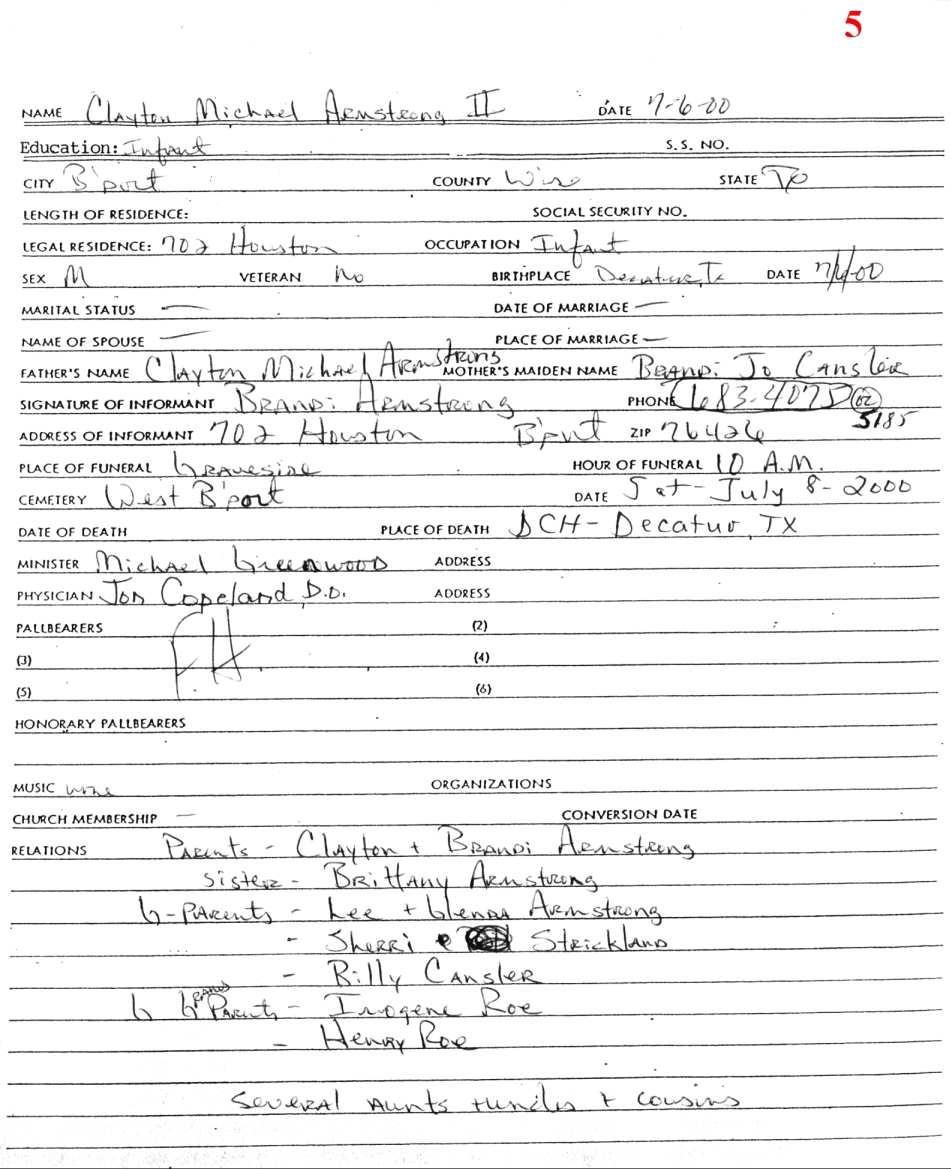 5
NAME Clayton Michael Armstrong II DATE 7-6-00
Education: Infant S.S. NO.
CITY B'port COUNTY Wise STATE
LENGTH OF RESIDENCE: SOCIAL SECURITY NO.
LEGAL RESIDENCE: 702 Houston OCCUPATION Infant
SEX M VETERAN No BIRTHPLACE Decatur, Tx DATE 7/6/00
MARITAL STATUS — DATE OF MARRIAGE —
NAME OF SPOUSE — PLACE OF MARRIAGE —
FATHER'S NAME Clayton Michael Armstrong MOTHER'S MAIDEN NAME Brandi Jo Cansler
SIGNATURE OF INFORMANT Brandi Armstrong PHONE 683-4075 02
5185
ADDRESS OF INFORMANT 702 Houston B'port ZIP 76426
PLACE OF FUNERAL Graveside HOUR OF FUNERAL 10 A.M.
CEMETERY West B'port DATE Sat- July 8-2000
DATE OF DEATH PLACE OF DEATH DCH- Decatur, TX
MINISTER Michael Greenwood ADDRESS
PHYSICIAN Jon Copeland, D.O. ADDRESS
PALLBEARERS (2)
F.H.
(3) (4)
(5) (6)
HONORARY PALLBEARERS
MUSIC none ORGANIZATIONS
CHURCH MEMBERSHIP — CONVERSION DATE
RELATIONS Parents - Clayton + Brandi Armstrong
Sister - Brittany Armstrong
G-Parents - Lee + Glenda Armstrong
- Sherri Strickland
- Billy Cansler
G Grand Parents - Imogene Roe
- Henry Roe
Several Aunts + uncles + cousins